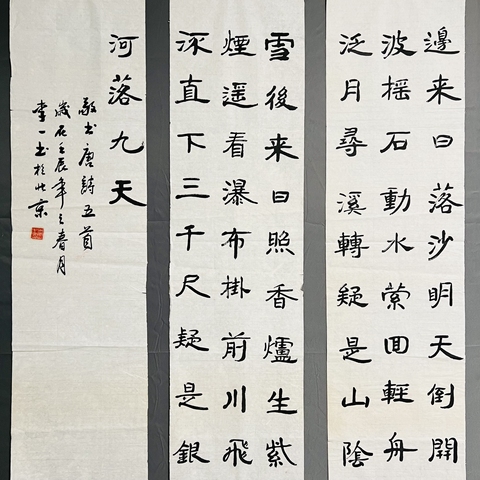 邊来曰落沙明天倒開
波摇石動水縈囬輕舟
泛月尋溪轉疑是山陰
雪後来日照香爐生紫
煙遥看瀑布掛前川飛
沠直下三千尺疑是銀
河落九天
敬书唐詩五首
歲在壬辰年之春月
李一书於北京